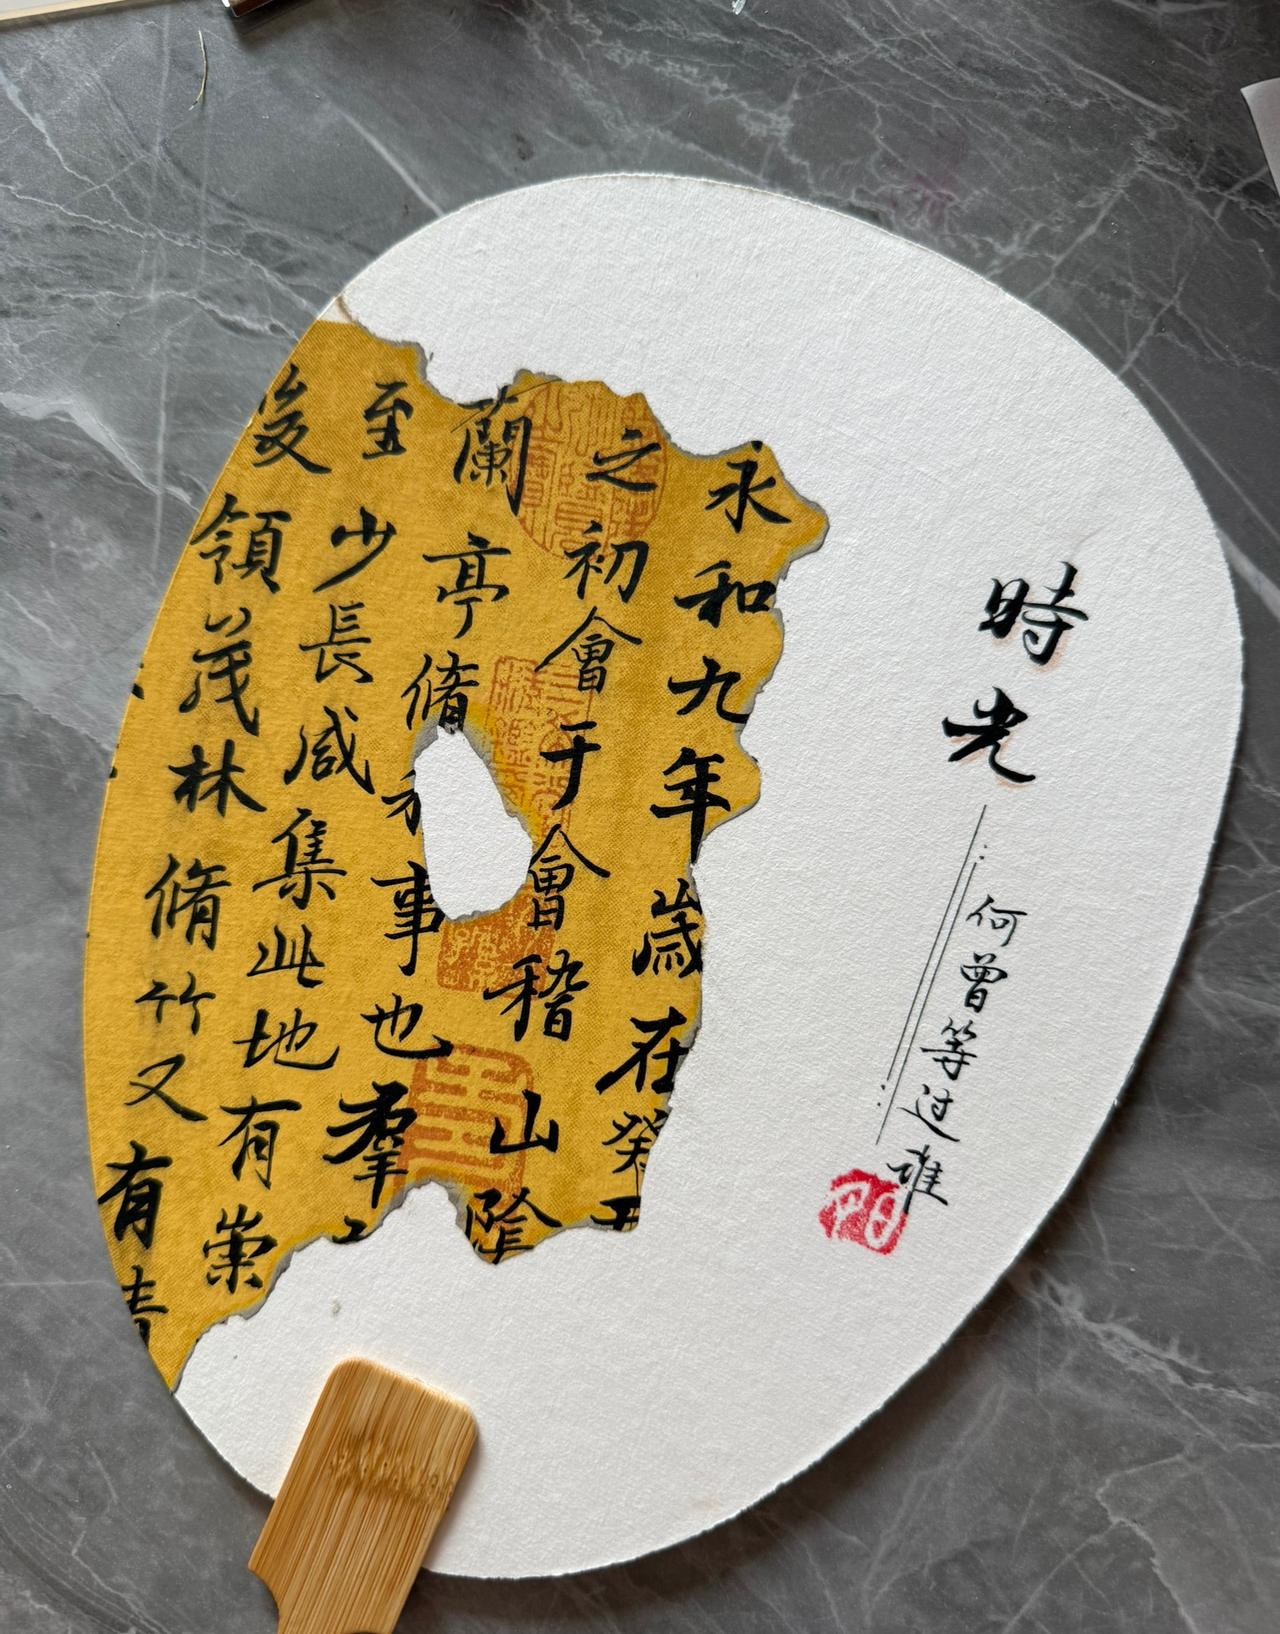 時光
何曾等过谁
永和九年歲在癸丑
之初會于會稽山陰
蘭亭脩事也羣
至少長咸集此地有崇
領茂林脩竹又有